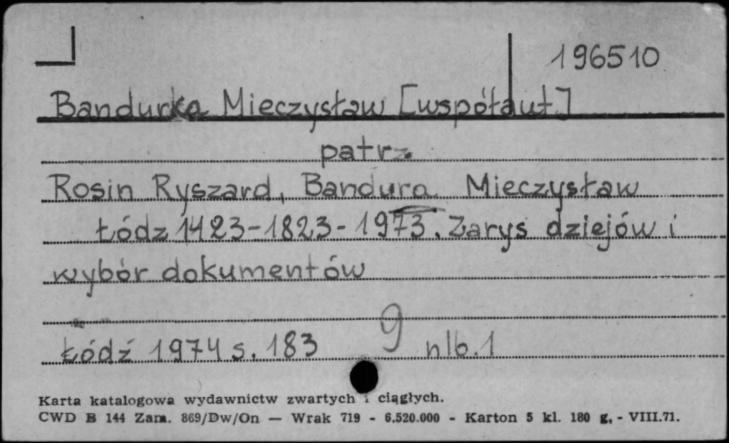 196510
Bandurka Mieczysław [współaut.]
patrz
Rosin Ryszard, Bandura Mieczysław
Łódz 1423-1823-1973. Zarys dziejów i
wybór dokumentów
Łódź 1974 s. 183 9 nlb. 1
Karta katalogowa wydawnictw zwartych i ciągłych.
CWD B 144 Zam. 869/Dw/On — Wrak 719 - 6.520.000 - Karton 5 kl. 180 g. - VIII.71.